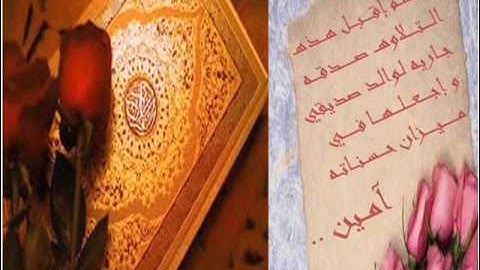 و إقبل هذه
التلاوه صدقه
جاريه لوالد صديقي
و إجعلها في
ميزان حسناته
آمين ..